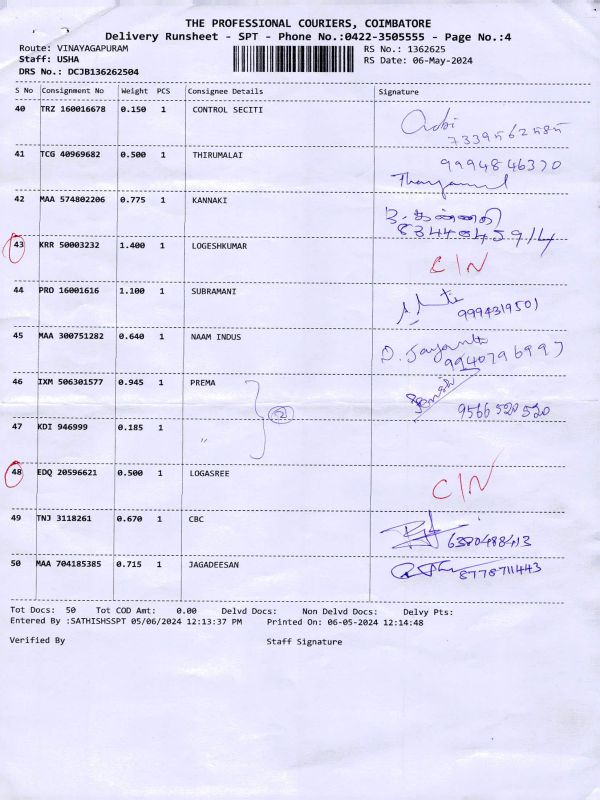 THE PROFESSIONAL COURIERS, COIMBATORE
Delivery Runsheet - SPT - Phone No.:0422-3505555 - Page No.:4
Route: VINAYAGAPURAM RS No.: 1362625
Staff: USHA RS Date: 06-May-2024
DRS No.: DCJB136262504
S No Consignment No Weight PCS Consignee Details Signature
40 TRZ 160016678 0.150 1 CONTROL SECITI
7339562585
41 TCG 40969682 0.500 1 THIRUMALAI 9994846370
42 MAA 574802206 0.775 1 KANNAKI
43 KRR 50003232 1.400 1 LOGESHKUMAR C/N
44 PRO 16001616 1.100 1 SUBRAMANI 9994319501
45 MAA 300751282 0.640 1 NAAM INDUS D.
9940796997
46 IXM 506301577 0.945 1 PREMA
2 9566520520
47 KDI 946999 0.185 1 "
48 EDQ 20596621 0.500 1 LOGASREE C/N
49 TNJ 3118261 0.670 1 CBC 6380488413
50 MAA 704185385 0.715 1 JAGADEESAN 8778711443
Tot Docs: 50 Tot COD Amt: 0.00 Delvd Docs: Non Delvd Docs: Delvy Pts:
Entered By :SATHISHSSPT 05/06/2024 12:13:37 PM Printed On: 06-05-2024 12:14:48
Verified By Staff Signature